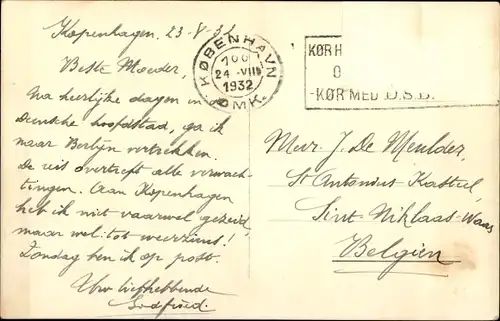 Kopenhagen. 23-8-32
Beste Moeder,
Na heerlijke dagen in de
Deensche hoofdstad, ga ik
naar Berlijn vertrekken.
De reis overtreft alle verwach-
tingen. Aan Kopenhagen
heb ik niet vaarwel gezeid,
maar wel: tot weerziens!
Zondag ben ik op post.
Uw liefhebbende
Godfried.
KØBENHAVN
24 -VIII
1932
OMK.
KØR H
KØR MED D.S.B.
Mevr J. De Meulder,
St Antonius-Kasteel,
Sint-Niklaas-Waas
Belgien